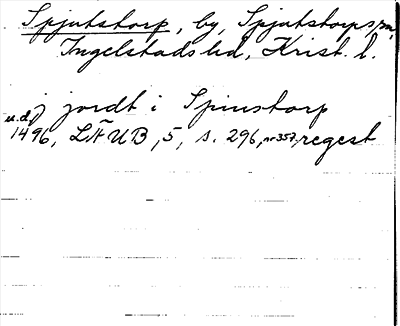 Spjutstorp, by, Spjutstorps sn,
Ingelstads hd, Krist. l.
j jordt i Spiustorp
u.d.
1496, LÄUB, 5, s. 296, nr 357, regest